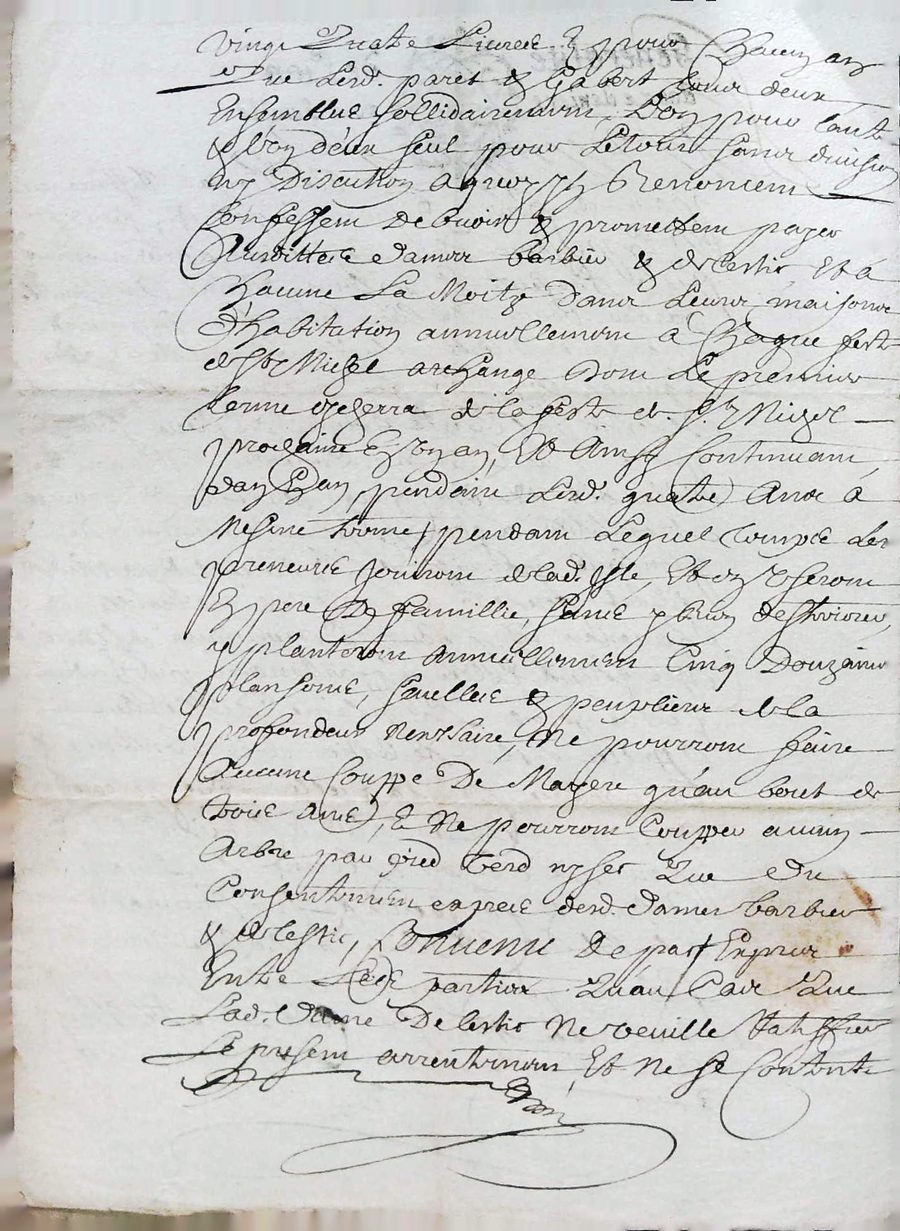 Vingt Quatre Livres Et pour Chacun an
Que Lesd. paret & Gabert tous deux
Ensemble sollidairement, L'un pour l'autre
& L'un d'eux seul pour Le tout sans division
ny Discution a quoy ils Renoncent
Confessent Debvoir & promettent payer
Ausdittes dames barbier & delestic Et a
Chacune La Moitye dans Leurs maisons
d'habitation annuellement a Chaque feste
de St Michel archange Dont Le premier
terme Escherra de la feste de St Michel
prochaine En Un an, Et Ainsy Continuant
d'an En an pendant Lesd. quatre Ans a
Mesme terme, pendant Lequel temps Les
preneurs Jouiront de lad. Isle, Et en Useront
En pere De famillie, sans y Rien destruire,
y planteront annuellement Cinq Douzaine
plansons, saulles & peupliers de la
profondeur Nenssaire, Ne pourront faire
Aucune Couppe De qu'au bout de
trois Ans, Et Ne pourront Coupper aucun
Arbre par pied Verd ny sec Que du
Consentement exprès desd. dames barbier
& delestic, Convenu De part Et
Entre Lesd. parties Qu'au Cas Que
Lad. Dame Delestic Ne veuille Ratiffier
Le present arrentement, Et Ne se Contente